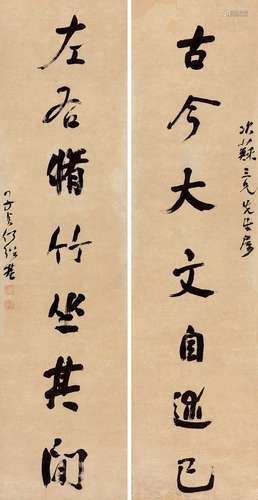 次蘓三兄先生屬
古今大文自已
左右脩竹坐其間
子貞何紹基